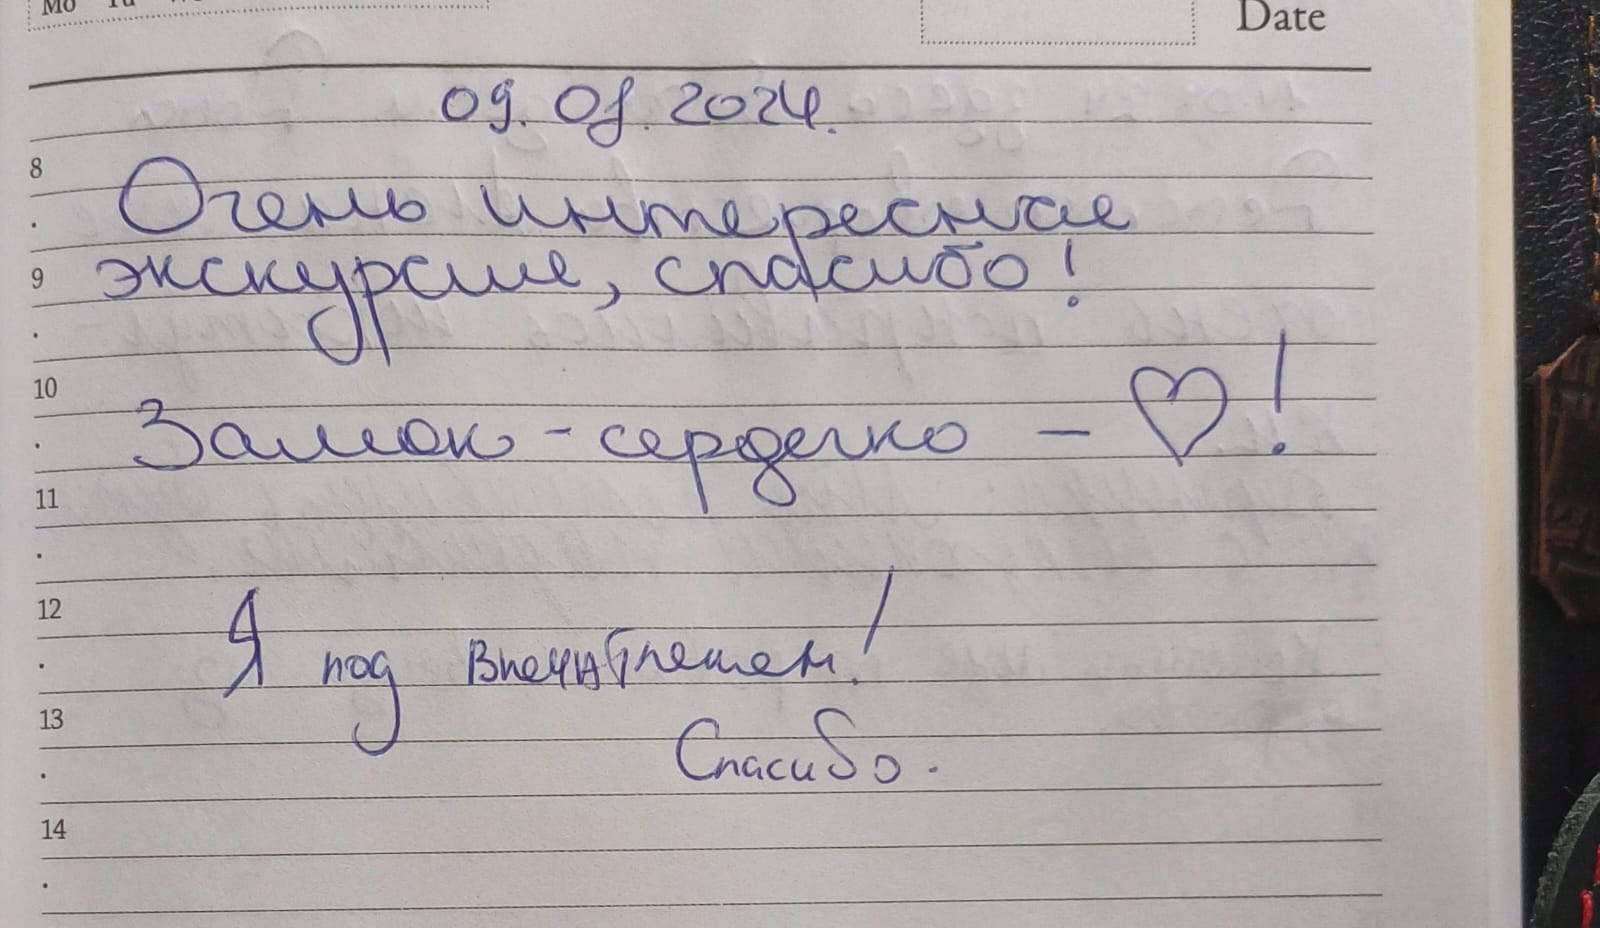 Mo Tu
Date
09.08.2024.
8
Очень интересная
9
экскурсия, спасибо!
10
Замок - сердечко - ♡!
11
12
Я под впечатлением!
13
Спасибо.
14